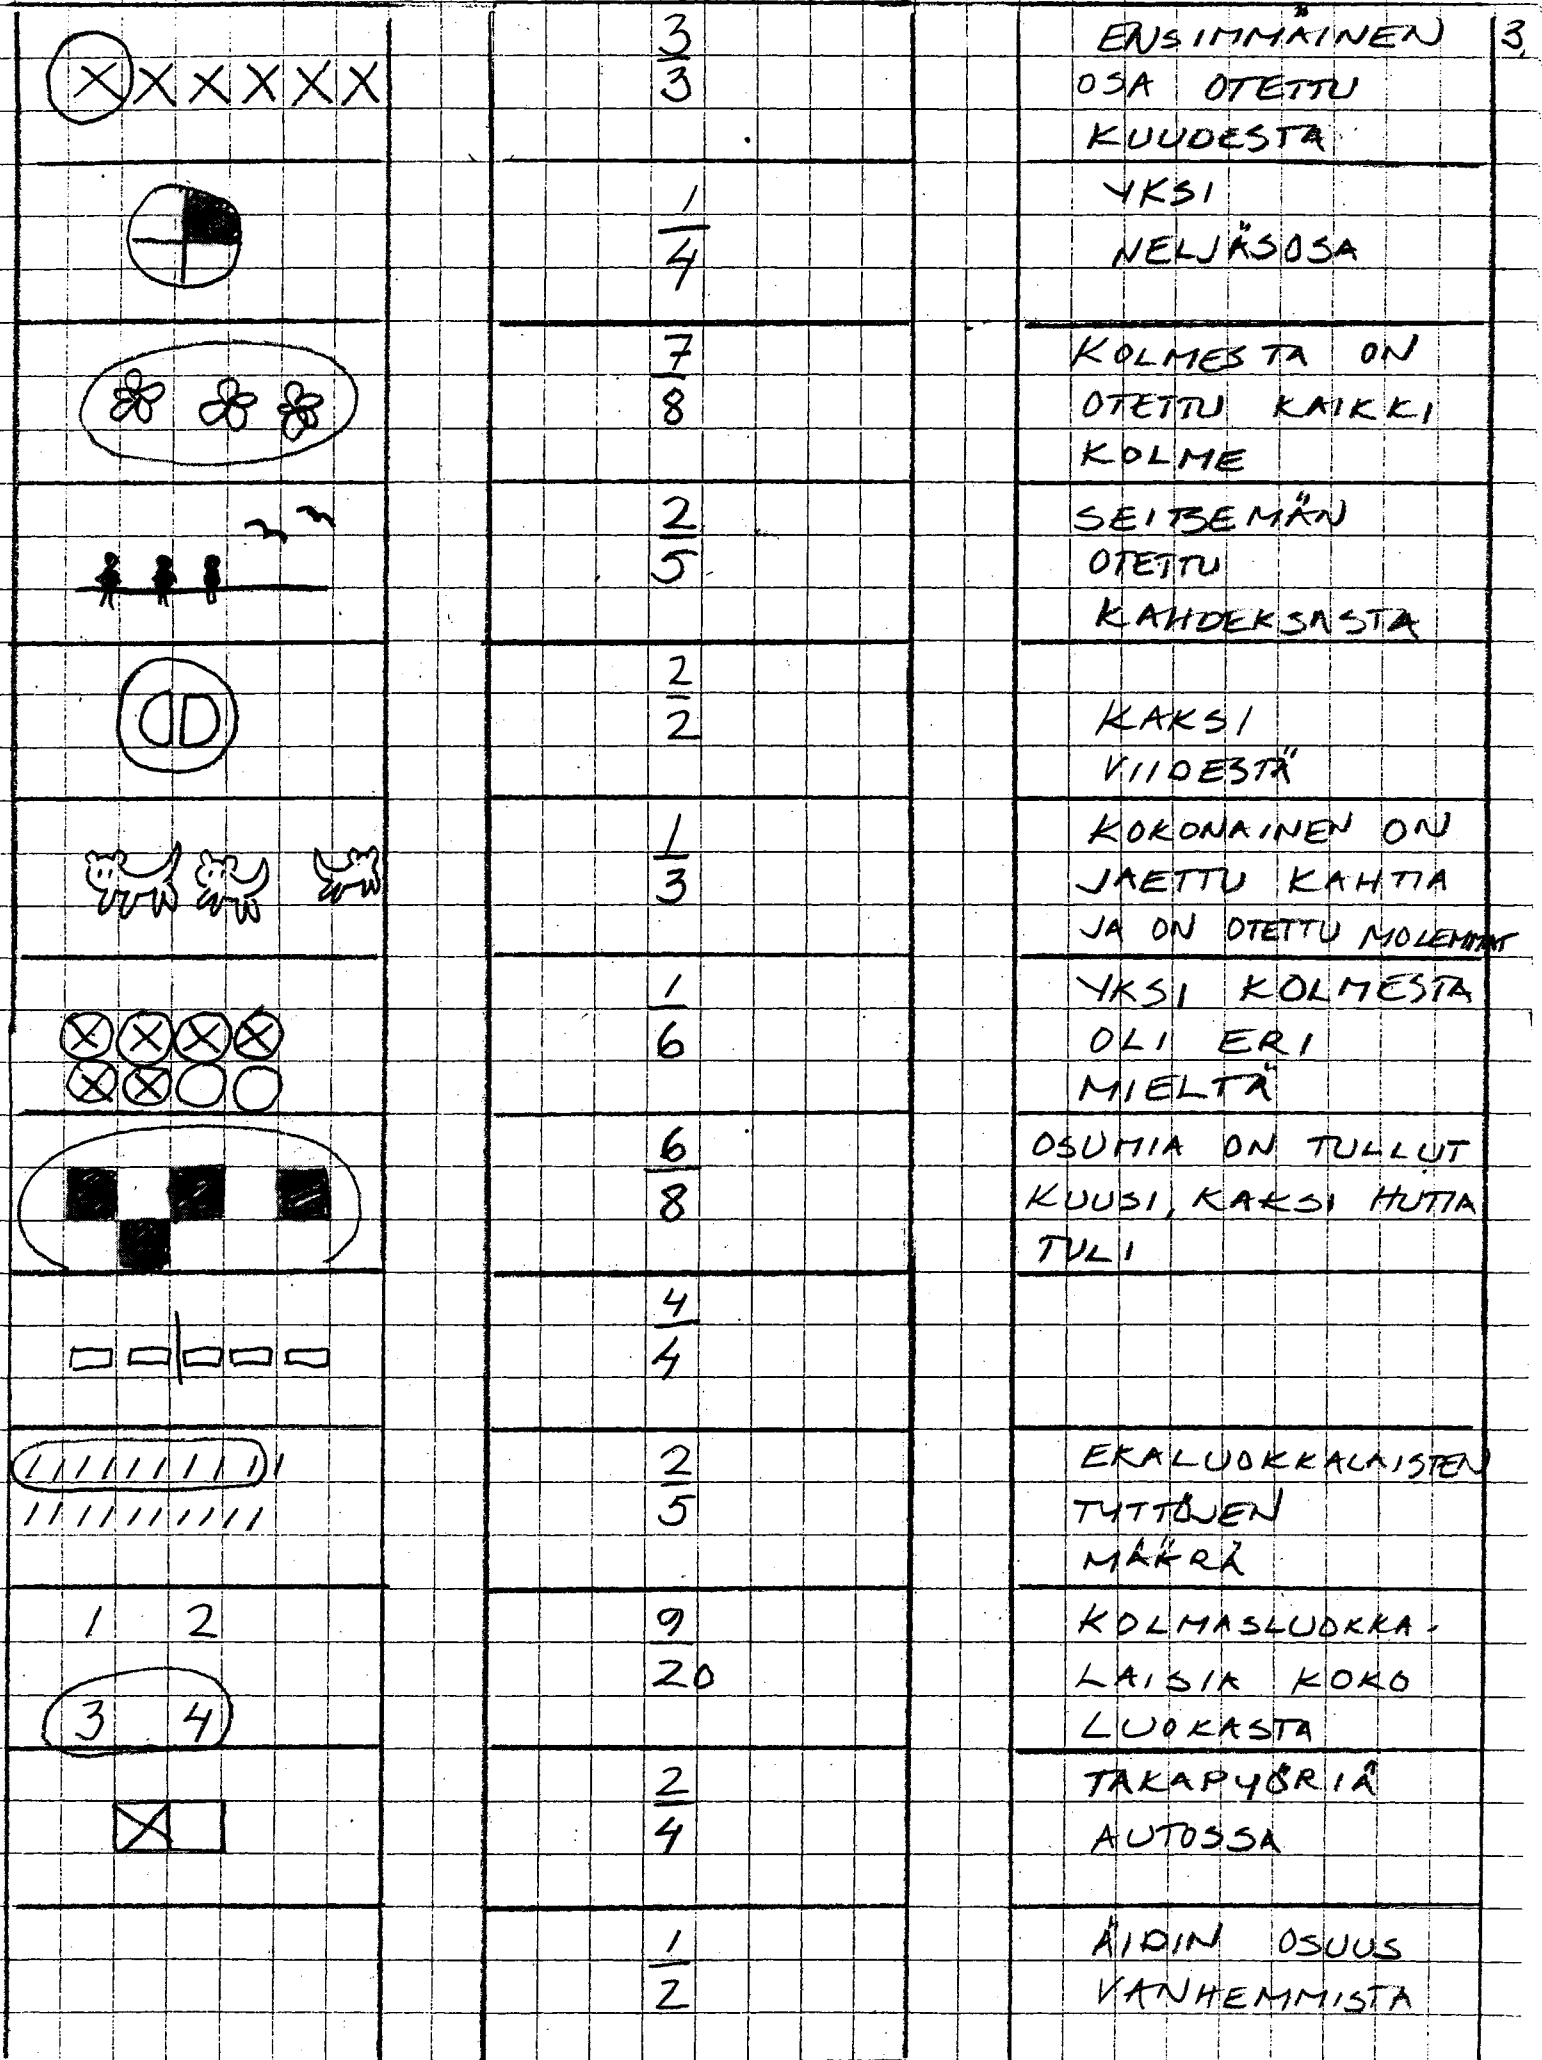 3
3
ENSIMMÄINEN
OSA OTETTU
KUUDESTA
3.
1
4
YKSI
NELJÄSOSA
7
8
KOLMESTA ON
OTETTU KAIKKI
KOLME
2
5
SEITSEMÄN
OTETTU
KAHDEKSASTA
2
2
KAKSI
VIIDESTÄ
1
3
KOKONAINEN ON
JAETTU KAHTIA
JA ON OTETTU MOLEMMAT
1
6
YKSI KOLMESTA
OLI ERI
MIELTÄ
6
8
OSUMIA ON TULLUT
KUUSI, KAKSI HUTIA
TULI
4
4
2
5
EKALUOKKALAISTEN
TYTTÖJEN
MÄÄRÄ
1 2
3 4
9
20
KOLMASLUOKKA-
LAISIA KOKO
LUOKASTA
2
4
TAKAPYÖRIÄ
AUTOSSA
1
2
ÄIDIN OSUUS
VANHEMMISTA